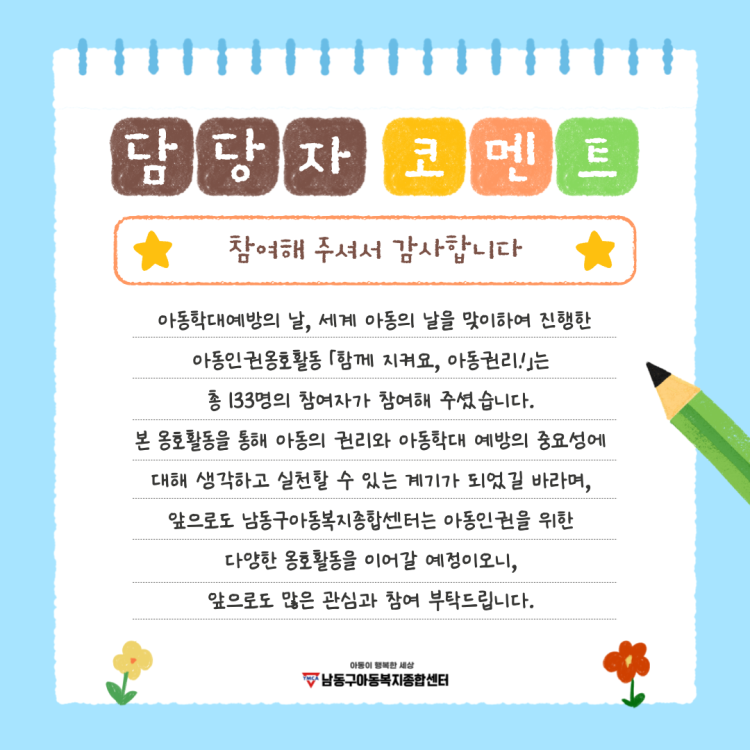 담당자 코멘트
참여해 주셔서 감사합니다
아동학대예방의 날, 세계 아동의 날을 맞이하여 진행한
아동인권옹호활동 「함께 지켜요, 아동권리!」는
총 133명의 참여자가 참여해 주셨습니다.
본 옹호활동을 통해 아동의 권리와 아동학대 예방의 중요성에
대해 생각하고 실천할 수 있는 계기가 되었길 바라며,
앞으로도 남동구아동복지종합센터는 아동인권을 위한
다양한 옹호활동을 이어갈 예정이오니,
앞으로도 많은 관심과 참여 부탁드립니다.
아동이 행복한 세상
YMCA 남동구아동복지종합센터